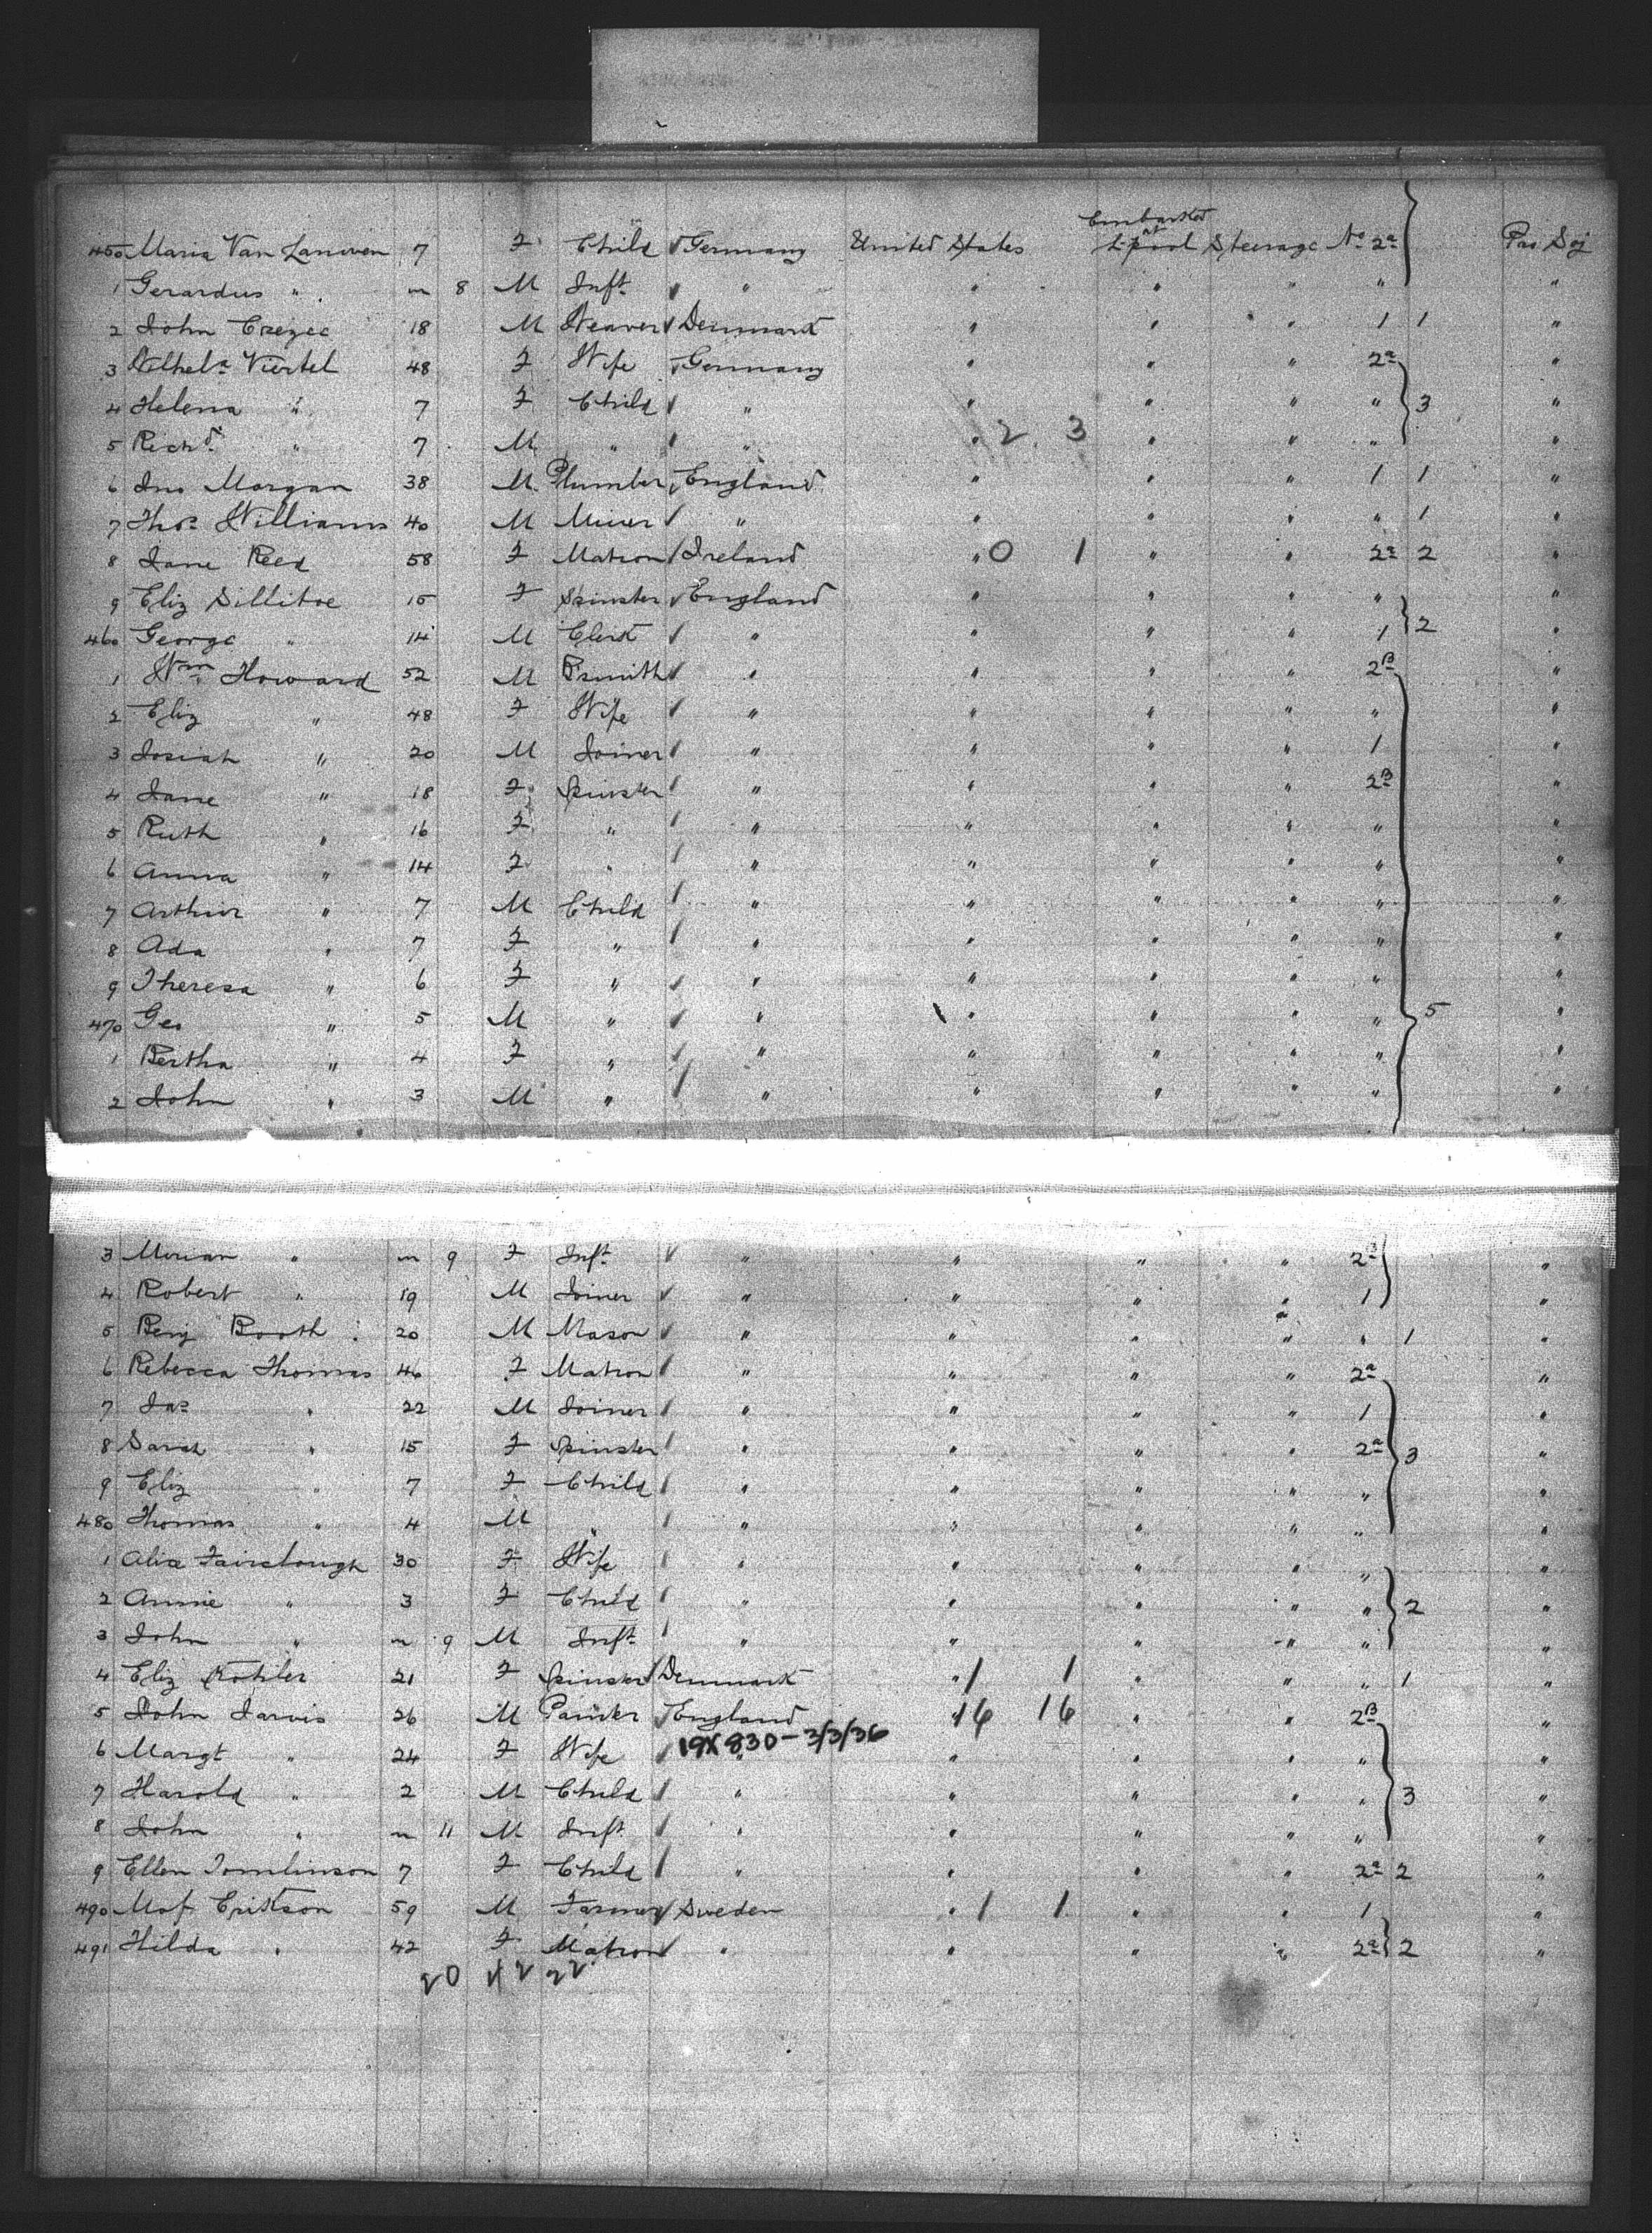 Embarked
450 Maria Van 7 F Child Germany United States at L'pool Steerage No 2a Pro Soj
1 Gerardus " m 8 M Inft " " " " " "
2 John 18 M Weaver Denmark " " " 1 1 "
3 Wilhela Viertel 48 F Wife Germany " " " 2a "
4 Helena " 7 F Child " " " " " 3 "
5 Richd " 7 M " " " 2 3 " " " "
6 Jno Morgan 38 M Plumber England " " " 1 1 "
7 Thos Williams 40 M Miner " " " " " 1 "
8 Jane Reed 58 F Matron Ireland " 0 1 " " 2a 2 "
9 Eliz Sillitoe 15 F Spinster England " " " " "
460 George " 14 M Clerk " " " " 1 2 "
1 Wm Howard 52 M Bsmith " " " " 2B "
2 Eliz " 48 F Wife " " " " " "
3 Josiah " 20 M Joiner " " " " 1 "
4 Jane " 18 F Spinster " " " " 2B "
5 Ruth " 16 F " " " " " " "
6 Anna " 14 F " " " " " " "
7 Arthur " 7 M Child " " " " " "
8 Ada " 7 F " " " " " " "
9 Theresa " 6 F " " " " " " "
470 Geo " 5 M " " " " " " 5 "
1 Bertha " 4 F " " " " " " "
2 John " 3 M " " " " " " "
3 Mirian " m 9 F Inft " " " " 2B "
4 Robert " 19 M Joiner " " " " 1 "
5 Benj Booth 20 M Mason " " " " " 1 "
6 Rebecca Thomas 46 F Matron " " " " 2a "
7 Jas " 22 M Joiner " " " " 1 "
8 Sarah " 15 F Spinster " " " " 2a 3 "
9 Eliz " 7 F Child " " " " " "
480 Thomas " 4 M " " " " " " "
1 Alice Fairclough 30 F Wife " " " " " "
2 Annie " 3 F Child " " " " " 2 "
3 John " m 9 M Inft " " " " " "
4 Eliz Kohler 21 F Spinster Denmark " 1 1 " " " 1 "
5 John Jarvis 26 M Painter England " 16 16 " " 2B "
6 Margt " 24 F Wife " 19X830-3/3/36 " " " " "
7 Harold " 2 M Child " " " " " 3 "
8 John " m 11 M Inft " " " " " "
9 Ellen Tomlinson 7 F Child " " " " 2a 2 "
490 Erikson 59 M Farmer Sweden " 1 1 " " 1 "
491 Hilda " 42 F Matron " " " " 2a 2 "
20 42 22